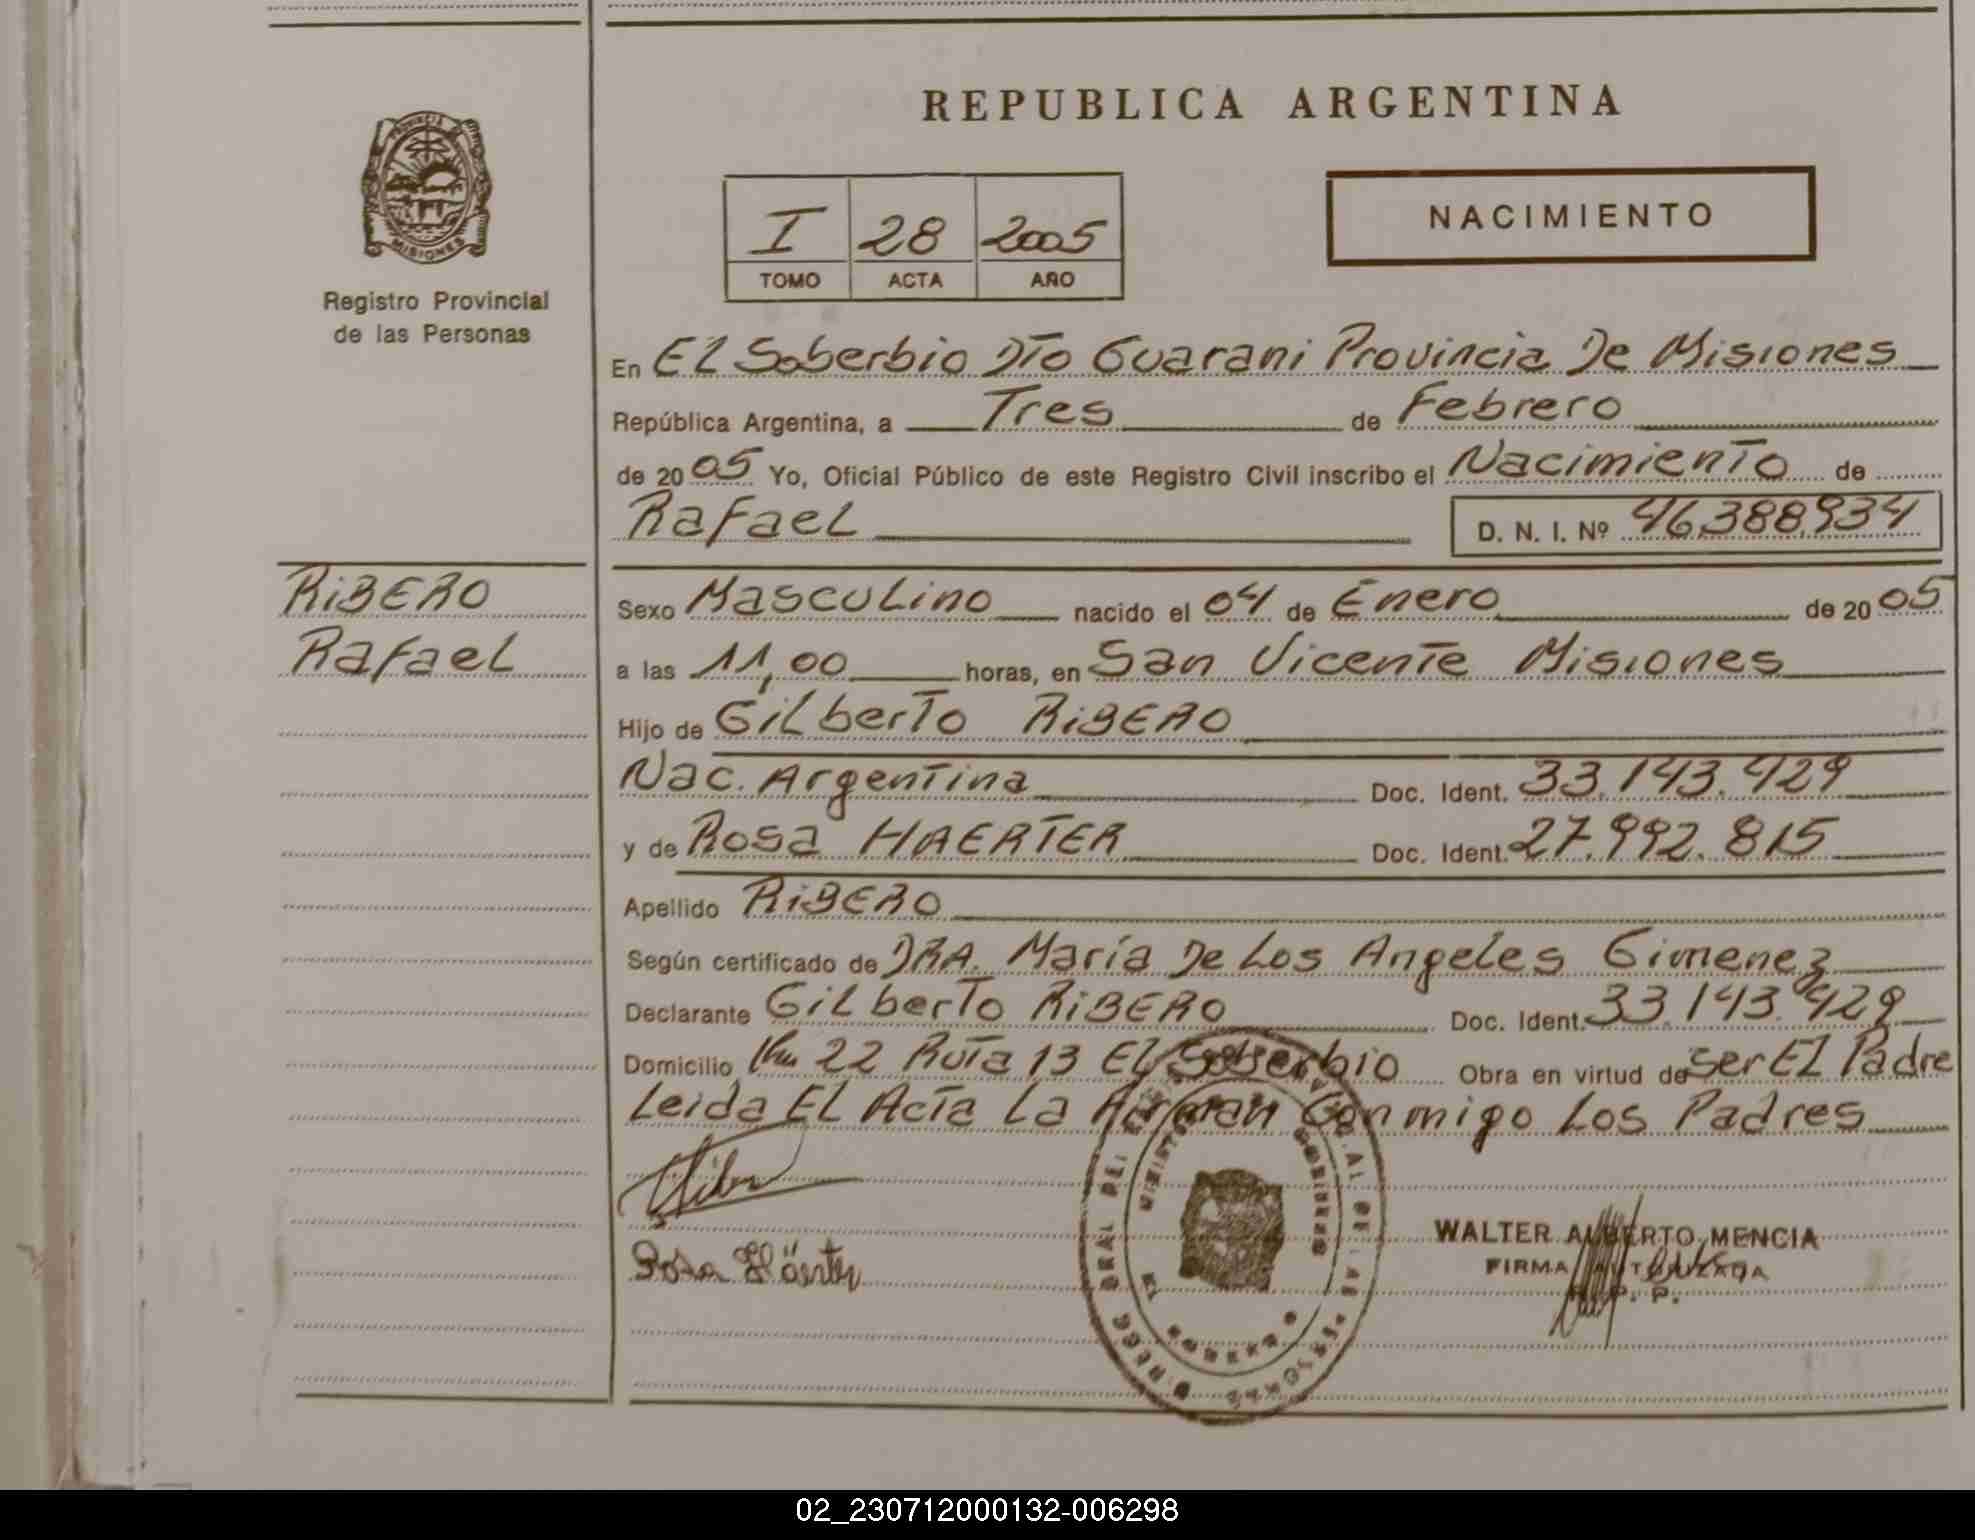 REPUBLICA ARGENTINA
PROVINCIA DE
MISIONES
Registro Provincial
de las Personas
I 28 2005
TOMO ACTA AÑO
NACIMIENTO
En El Soberbio Dto Guarani Provincia De Misiones
República Argentina, a Tres de Febrero
de 2005 Yo, Oficial Público de este Registro Civil inscribo el Nacimiento de
Rafael D. N. I. Nº 46388,934
RiBERO
Rafael
Sexo Masculino nacido el 04 de Enero de 2005
a las 11,00 horas, en San Vicente Misiones
Hijo de Gilberto RiBERO
Nac. Argentina Doc. Ident. 33.143.429
y de Rosa HAERTER Doc. Ident. 27.992.815
Apellido RiBERO
Según certificado de DRA. María De Los Angeles Gimenez
Declarante Gilberto RiBERO Doc. Ident. 33.143.429
Domicilio Km 22 Ruta 13 El Soberbio Obra en virtud de ser El Padre
Leida El Acta La Firman Conmigo Los Padres
Rosa Häerter
WALTER ALBERTO MENCIA
FIRMA AUTORIZADA
R. P. P.
02_230712000132-006298